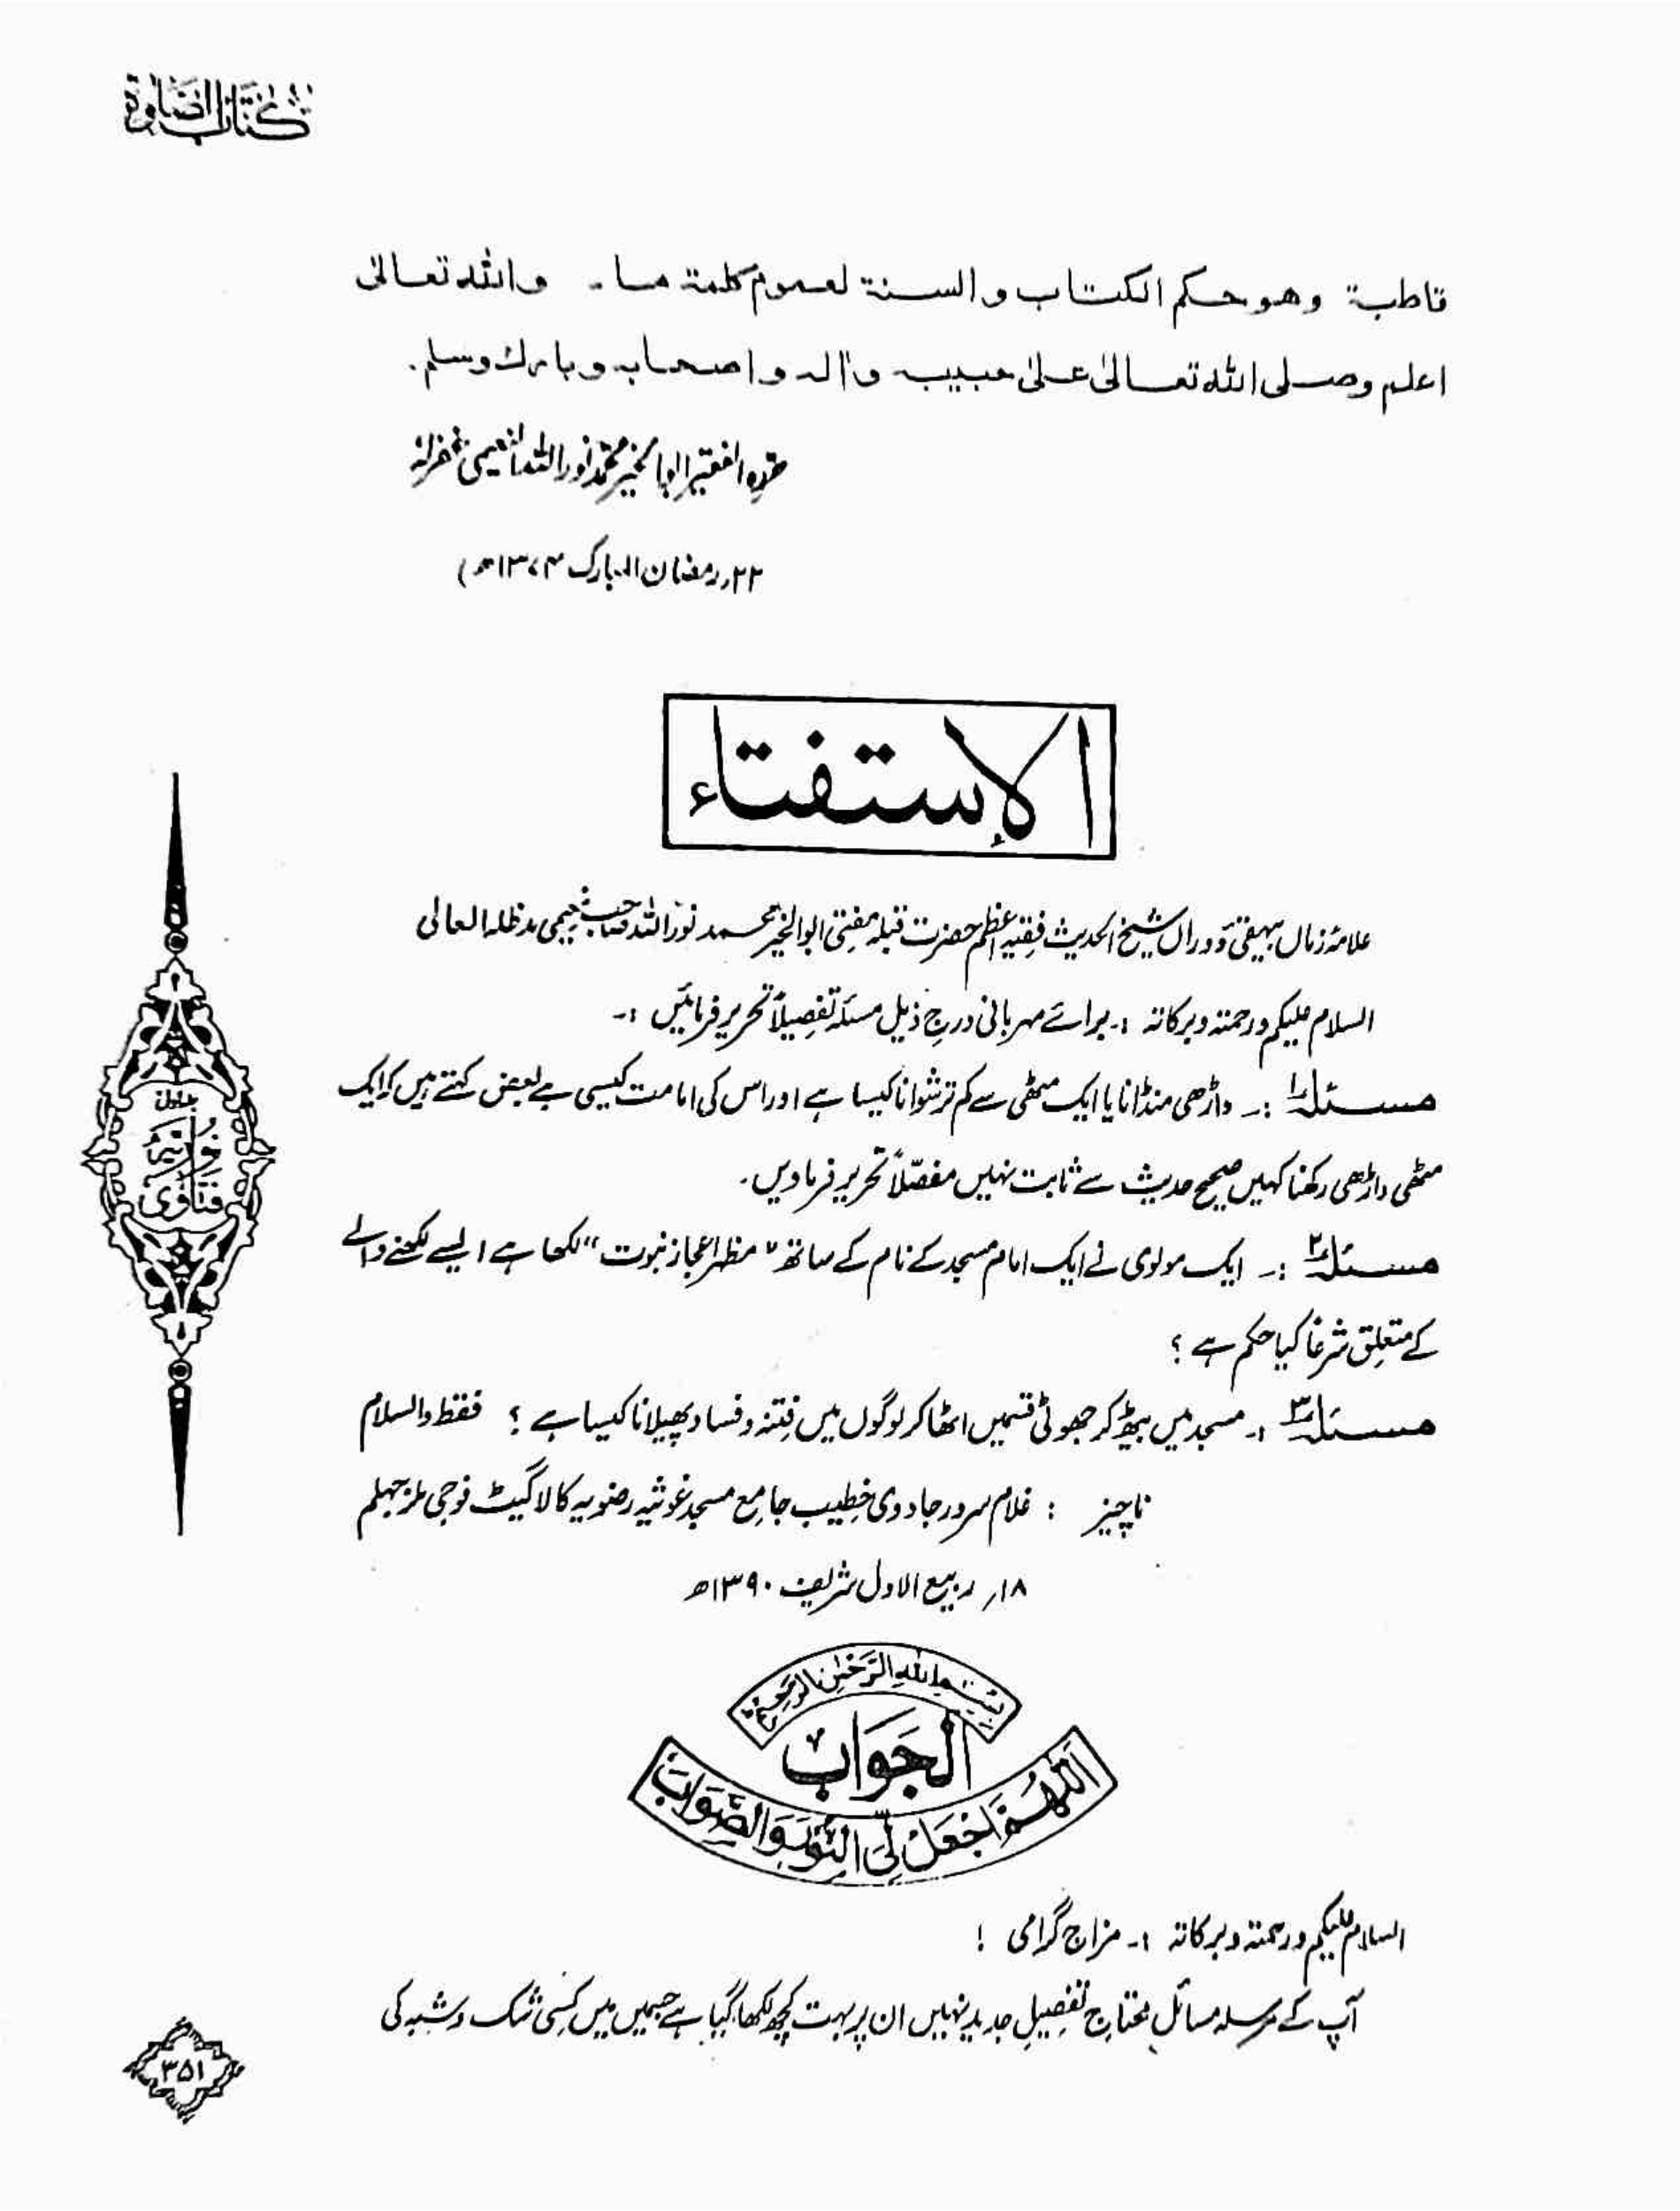 كتاب الصلوة
قاطبة وهو حكم الكتاب والسنة لعموم كلمة ما۔ والله تعالىٰ
اعلم وصلى الله تعالىٰ علىٰ حبيبه وآله واصحابه وبارك وسلم.
حرره الفقير ابوالخير محمد نورالله النعيمى غفرلهٗ
۲۲؍ رمضان المبارک ۱۳۷۴ھ)
الاستفتاء
علامۂ زماں بیہقیٔ دوراں شیخ الحدیث فقیہ اعظم حضرت قبلہ مفتی ابوالخیر محمد نوراللہ صاحب نعیمی مدظلہ العالی
السلام علیکم ورحمتہ وبرکاتہ :۔ برائے مہربانی درج ذیل مسئلہ تفصیلاً تحریر فرمائیں :۔
مسئلہ ۱ :۔ داڑھی منڈانا یا ایک مٹھی سے کم ترشوانا کیسا ہے اور اس کی امامت کیسی ہے بعض کہتے ہیں کہ ایک
مٹھی داڑھی رکھنا کہیں صحیح حدیث سے ثابت نہیں مفصّلاً تحریر فرما دیں۔
مسئلہ ۲ :۔ ایک مولوی نے ایک امام مسجد کے نام کے ساتھ "مظہر اعجاز نبوت" لکھا ہے ایسے لکھنے والے
کے متعلق شرعًا کیا حکم ہے ؟
مسئلہ ۳ :۔ مسجد میں بیٹھ کر جھوٹی قسمیں اٹھا کر لوگوں میں فتنہ وفساد پھیلانا کیسا ہے ؟ فقط والسلام
ناچیز : غلام سرور جادوی خطیب جامع مسجد غوثیہ رضویہ کالا گیٹ فوجی ملز جہلم
۱۸؍ ربیع الاول شریف ۱۳۹۰ھ
جلد اول
نوریہ
فتاوٰی
بسم الله الرحمٰن الرحيم
الجواب
اللهم اجعل لي النور والصواب
السلام علیکم ورحمتہ وبرکاتہ :۔ مزاج گرامی !
آپ کے مرسلہ مسائل محتاجِ تفصیلِ جدید نہیں ان پر بہت کچھ لکھا گیا ہے جسمیں میں کسی شک وشبہ کی
۳۵۱